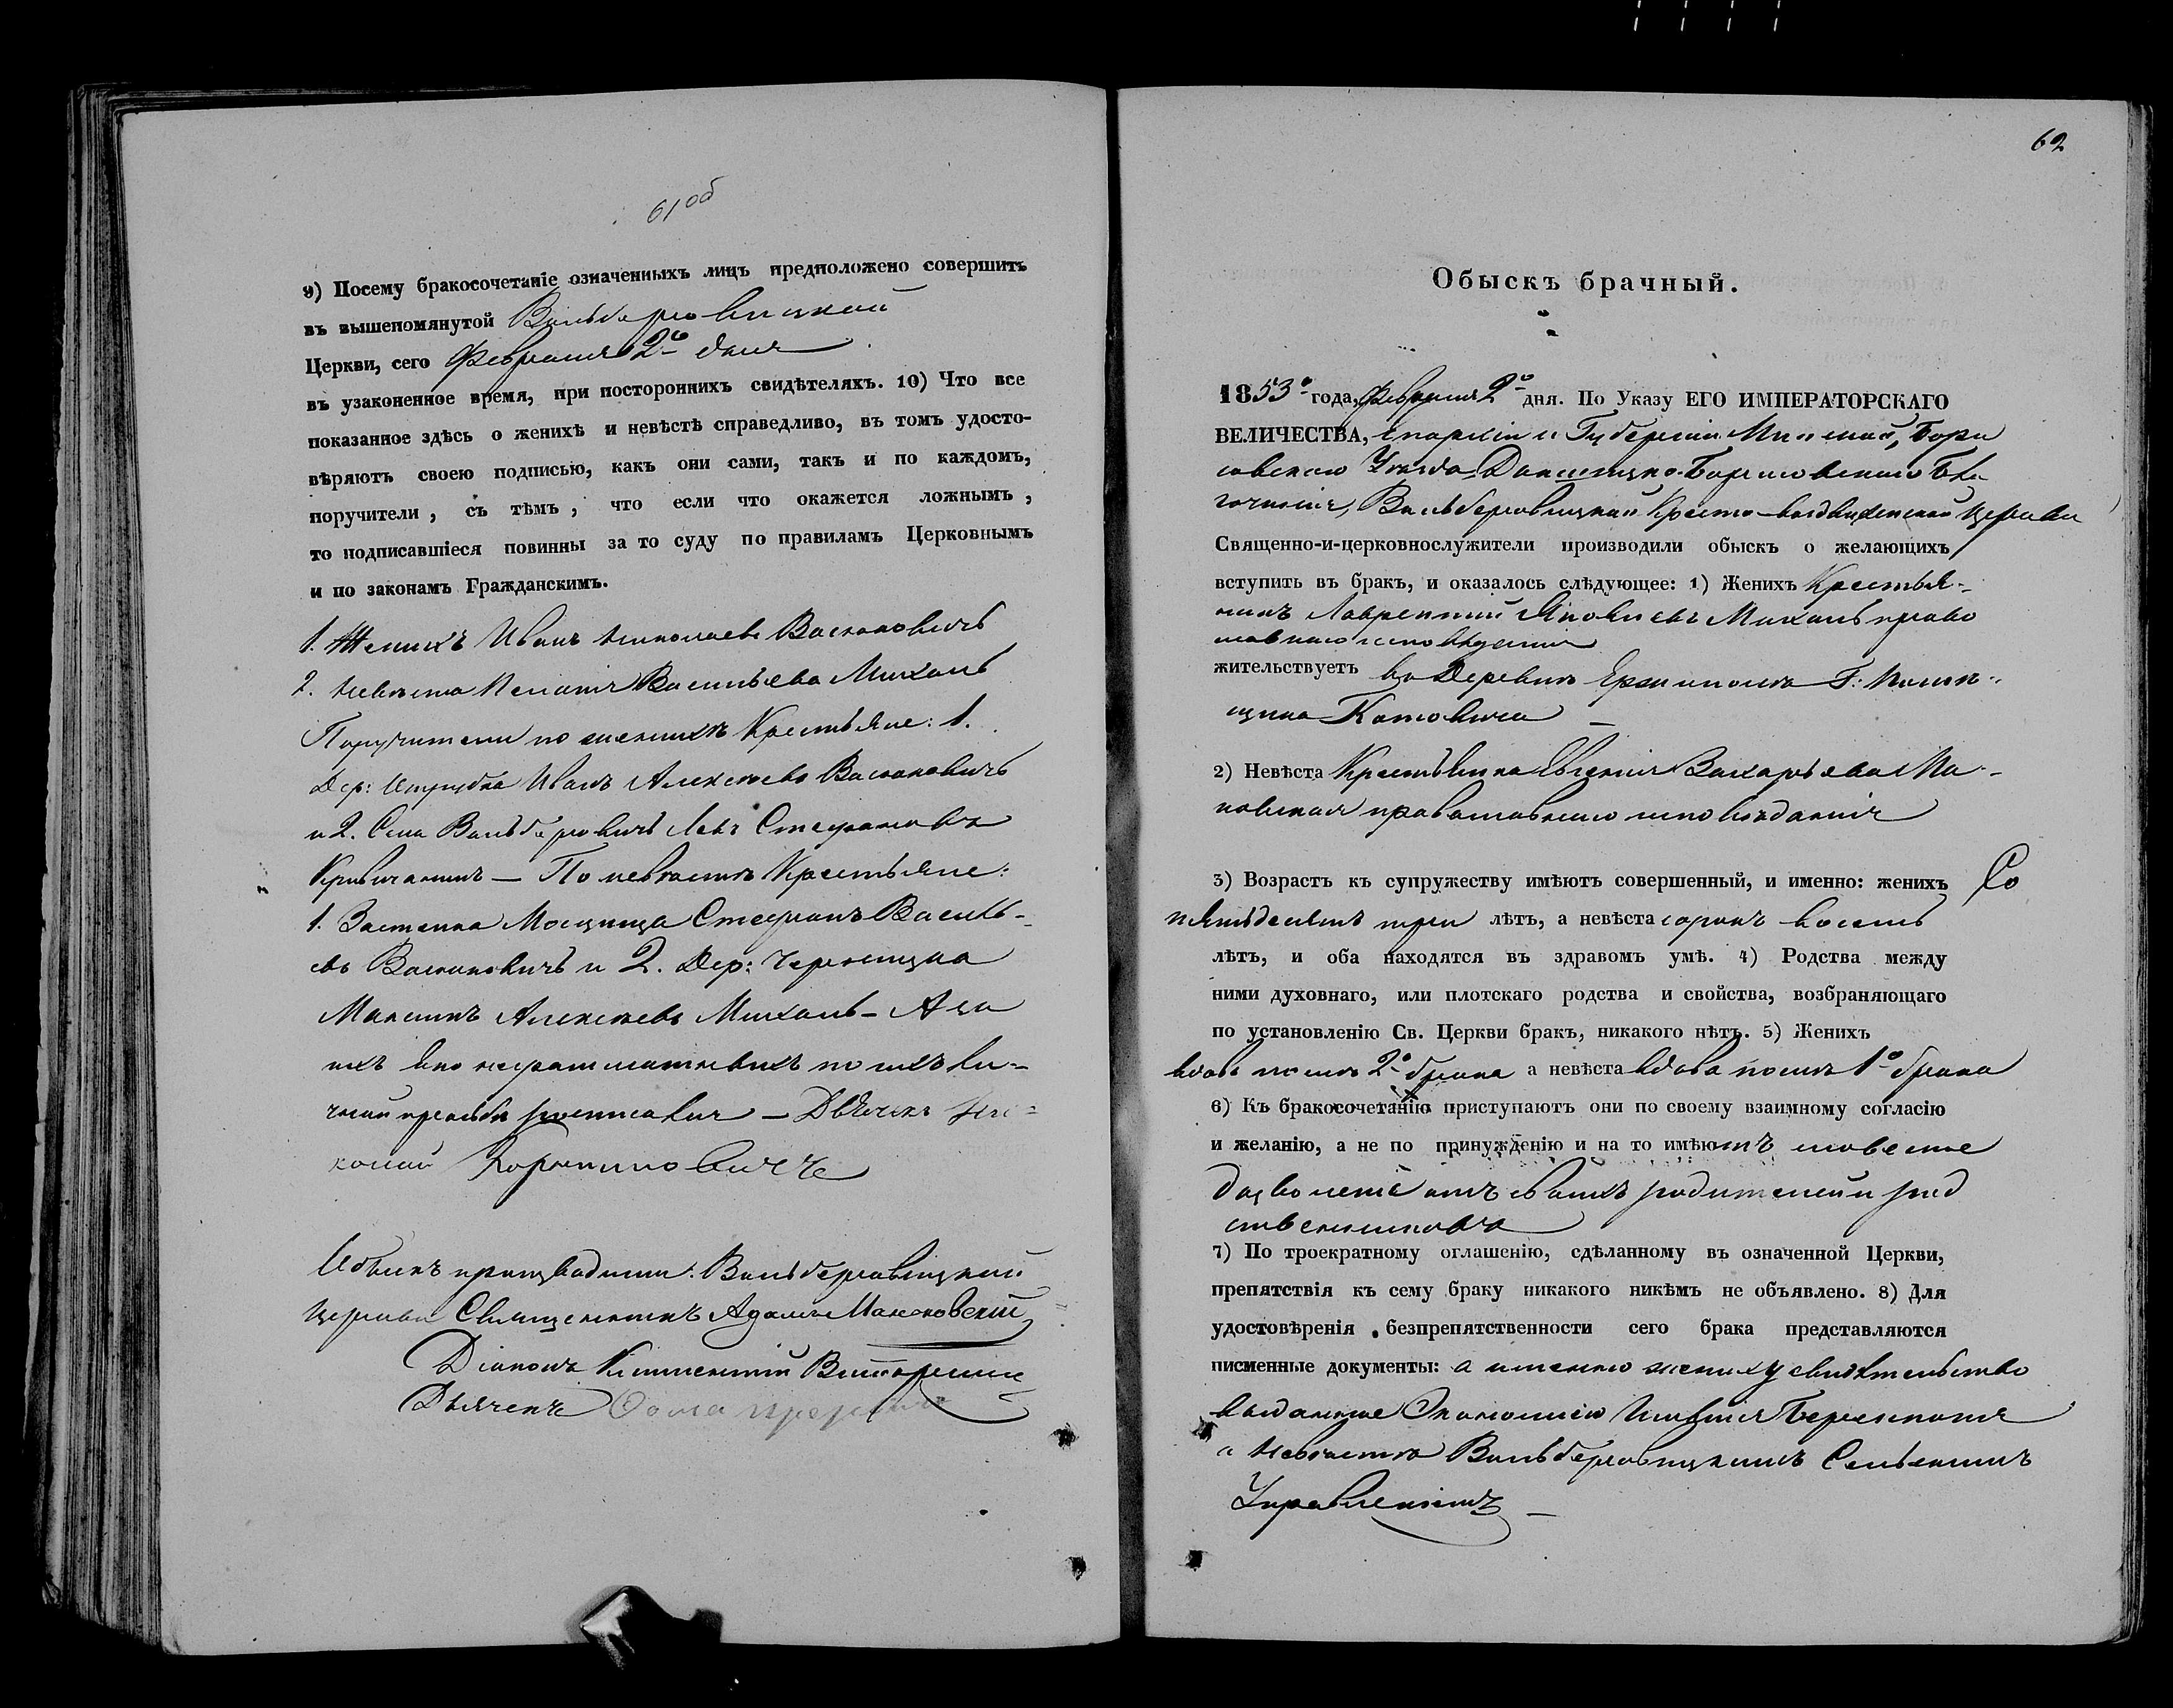 61об
9) Посему бракосочетаніе означенныхъ лицъ предположено совершить
въ вышепомянутой Вильберовицкой
Церкви, сего Февраля 2го дня
въ узаконенное время, при постороннихъ свидѣтеляхъ. 10) Что все
показанное здѣсь о женихѣ и невѣстѣ справедливо, въ томъ удосто-
вѣряютъ своею подписью, какъ они сами, такъ и по каждомъ,
поручители, съ тѣмъ, что если что окажется ложнымъ,
то подписавшіеся повинны за то суду по правиламъ Церковнымъ
и по законамъ Гражданскимъ.
1. Женихъ Иванъ Николаевъ Васюковичъ
2. Невѣста Пелагія Васильева Михаль
Поручители по женихѣ Крестьяне: 1.
Дер: Иванъ Алексѣевъ Васюковичъ
и 2. Села Вильберовичъ Левъ Стефановъ
Кривичанинъ — По невѣстѣ Крестьяне:
1. Застенка Мосцища Стефанъ Василь-
евъ Васюковичъ и 2. Дер: Черницка
Максимъ Алексѣевъ Михаль — А за
ихъ яко неграматныхъ по ихъ ли-
чной прозьбѣ росписался — Дьячекъ Ни-
колай
Обыскъ производили: Вильберовицкой
Церкви Священникъ Адамъ Маноковскій
Діаконъ
Дьячекъ Фома
62
Обыскъ брачный.
1853го года, Февраля 2го дня. По Указу ЕГО ИМПЕРАТОРСКАГО
ВЕЛИЧЕСТВА, Епархіи и Губерніи Минской, Бори
совскаго Уѣзда Докшицко-Борисовскаго Бла
гочинія, Вильберовицкой Кресто-воздвиженской Церкви
Священно-и-церковнослужители производили обыскъ о желающихъ
вступить въ бракъ, и оказалось слѣдующее: 1) Женихъ Крестья-
нинъ Лаврентій Яковлевъ Михаль право
славнаго исповѣданія
жительствуетъ въ Деревнѣ Г: Помѣ-
щика Котовича —
2) Невѣста Крестьянка Евгенія Захарьева Ма-
ковская православнаго исповѣданія
3) Возрастъ къ супружеству имѣютъ совершенный, и именно: женихъ
пятьдесятъ три лѣтъ, а невѣста сорокъ восемь
лѣтъ, и оба находятся въ здравомъ умѣ. 4) Родства между
ними духовнаго, или плотскаго родства и свойства, возбраняющаго
по установленію Св. Церкви бракъ, никакого нѣтъ. 5) Женихъ
вдовъ послѣ 2го брака а невѣста вдова послѣ 1го брака
6) Къ бракосочетанію приступаютъ они по своему взаимному согласію
и желанію, а не по принужденію и на то имѣютъ словесное
дозволеніе отъ своихъ родителей и род
ственниковъ
7) По троекратному оглашенію, сдѣланному въ означенной Церкви,
препятствія къ сему браку никакого никѣмъ не объявлено. 8) Для
удостовѣренія безпрепятственности сего брака представляются
писменные документы: а именно жениху свидѣтельство
выданное Экономіею Имѣнія
а Невѣстѣ Вильберовицкимъ Сельскимъ
Управленіемъ —